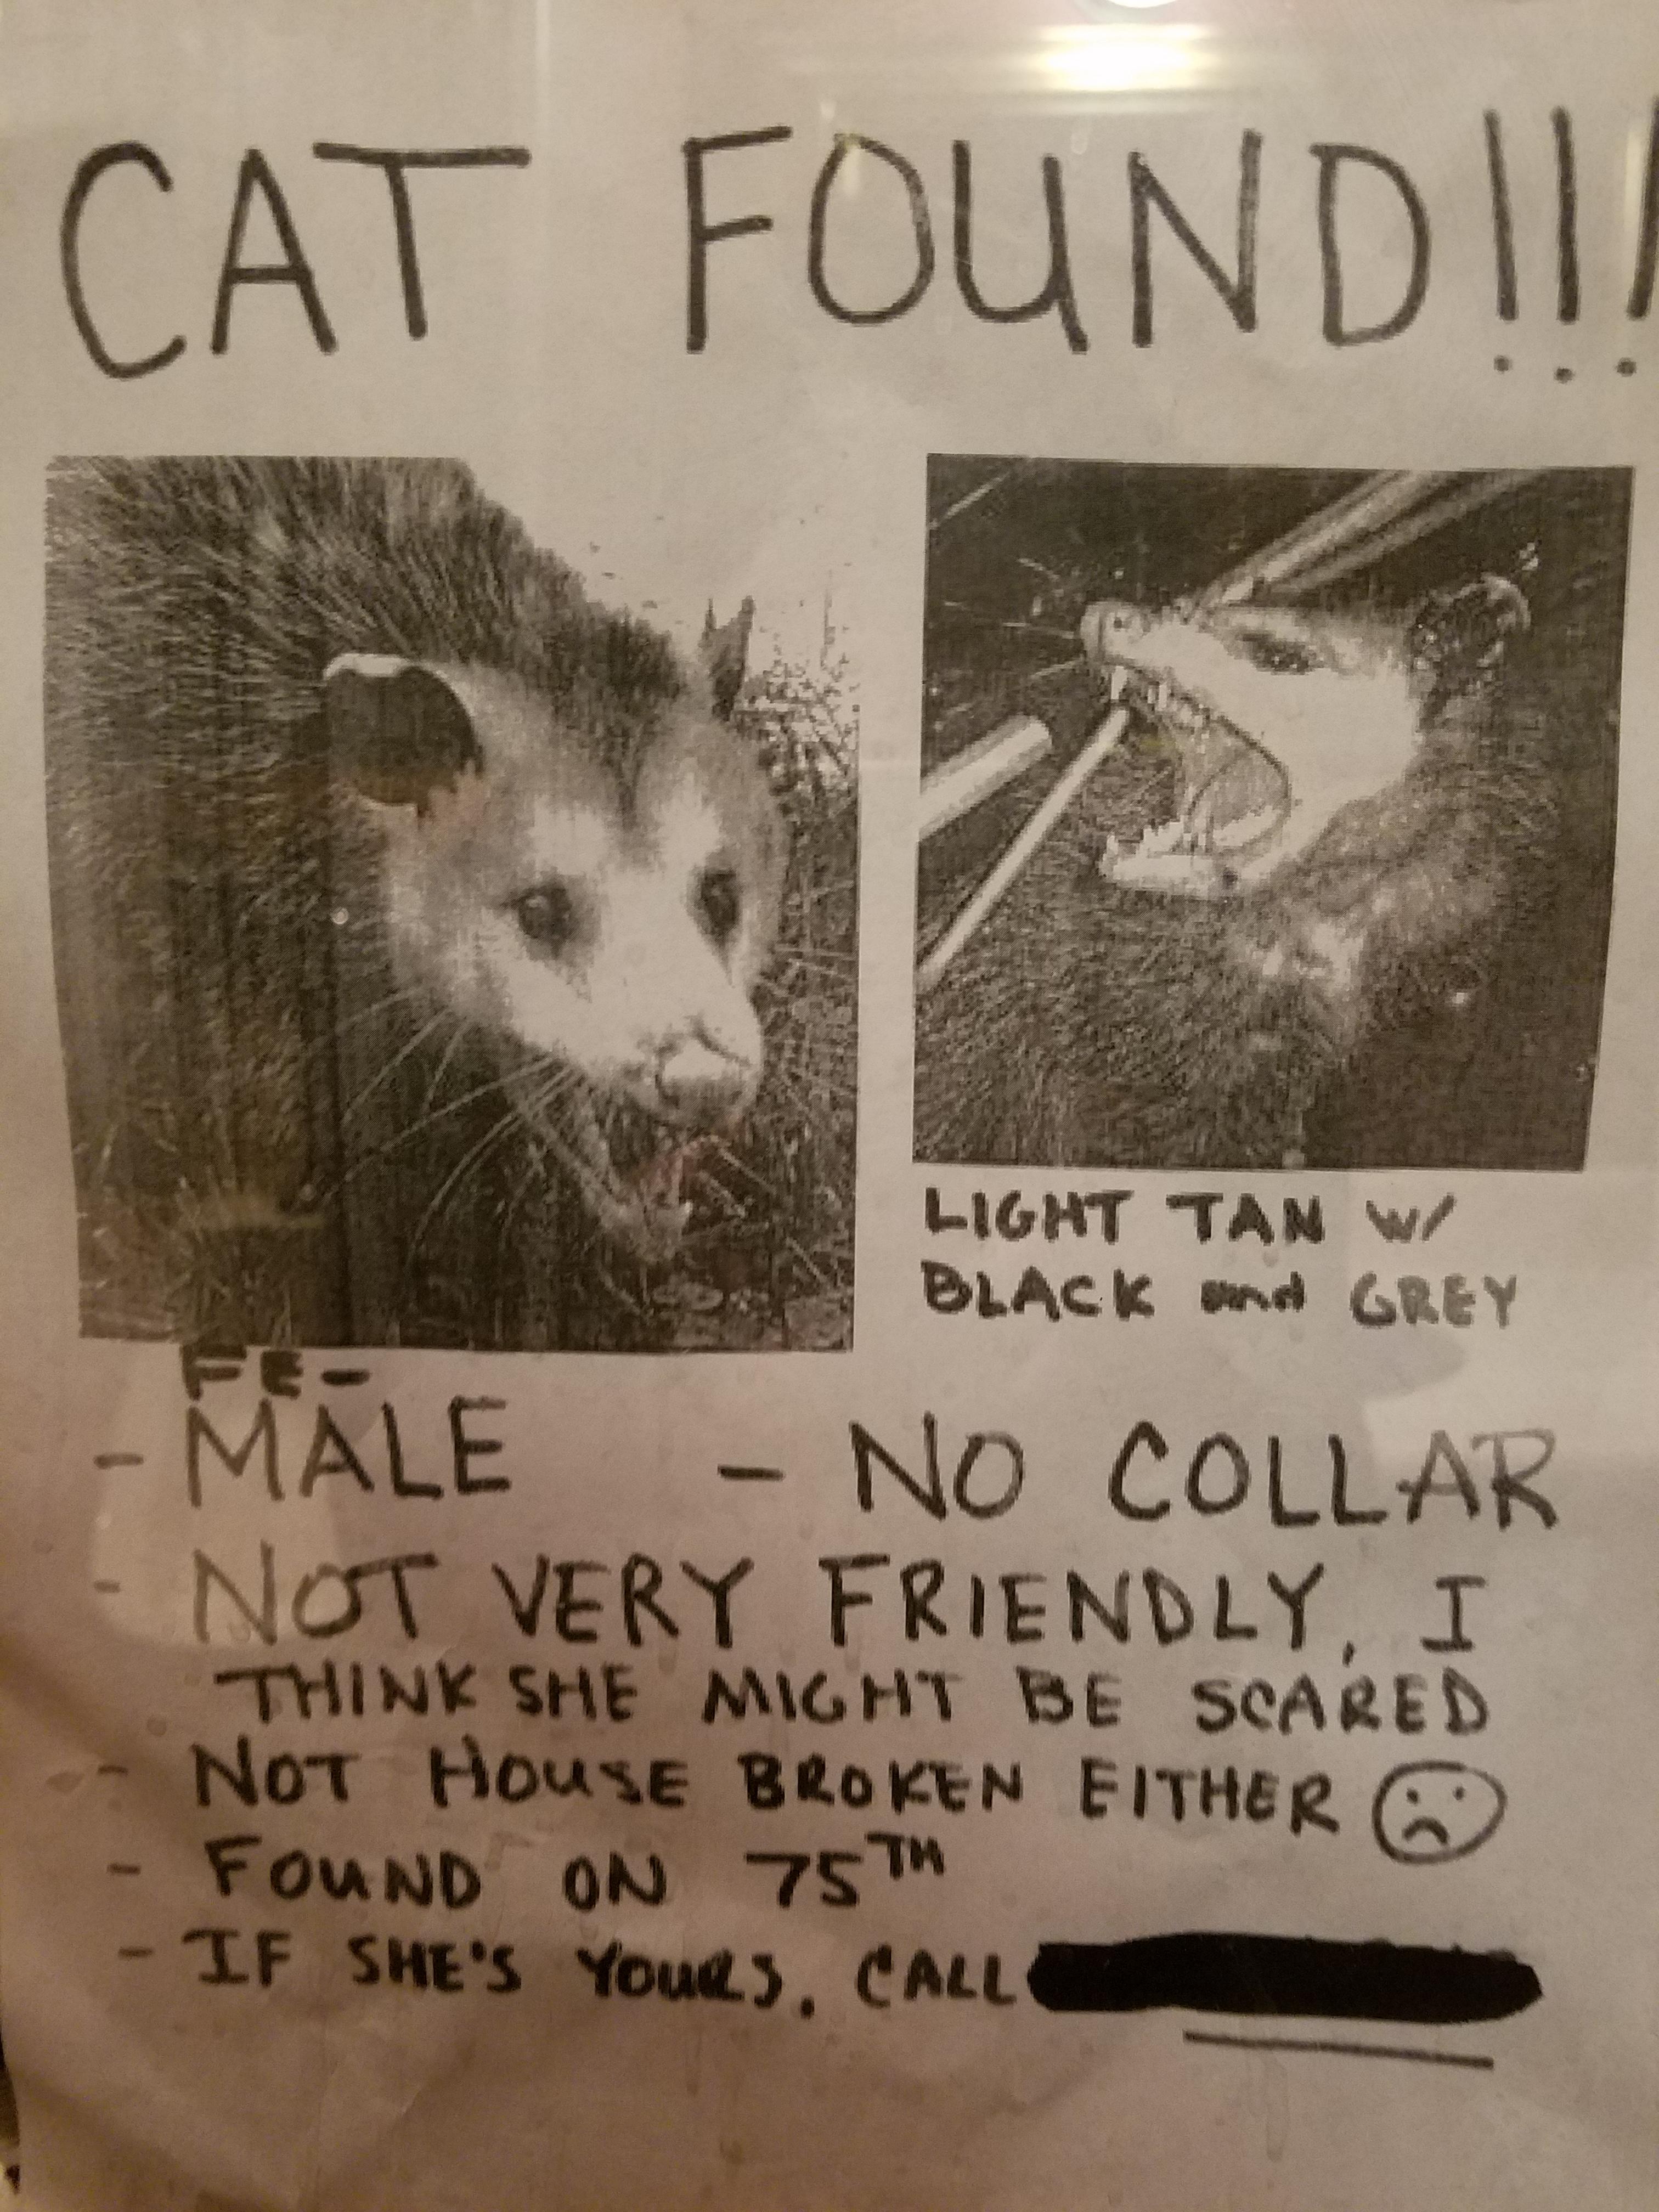 CAT FOUND!!!
LIGHT TAN W/
BLACK and GREY
FE-
- MALE - NO COLLAR
- NOT VERY FRIENDLY, I
THINK SHE MIGHT BE SCARED
- NOT HOUSE BROKEN EITHER
- FOUND ON 75TH
- IF SHE'S YOURS, CALL